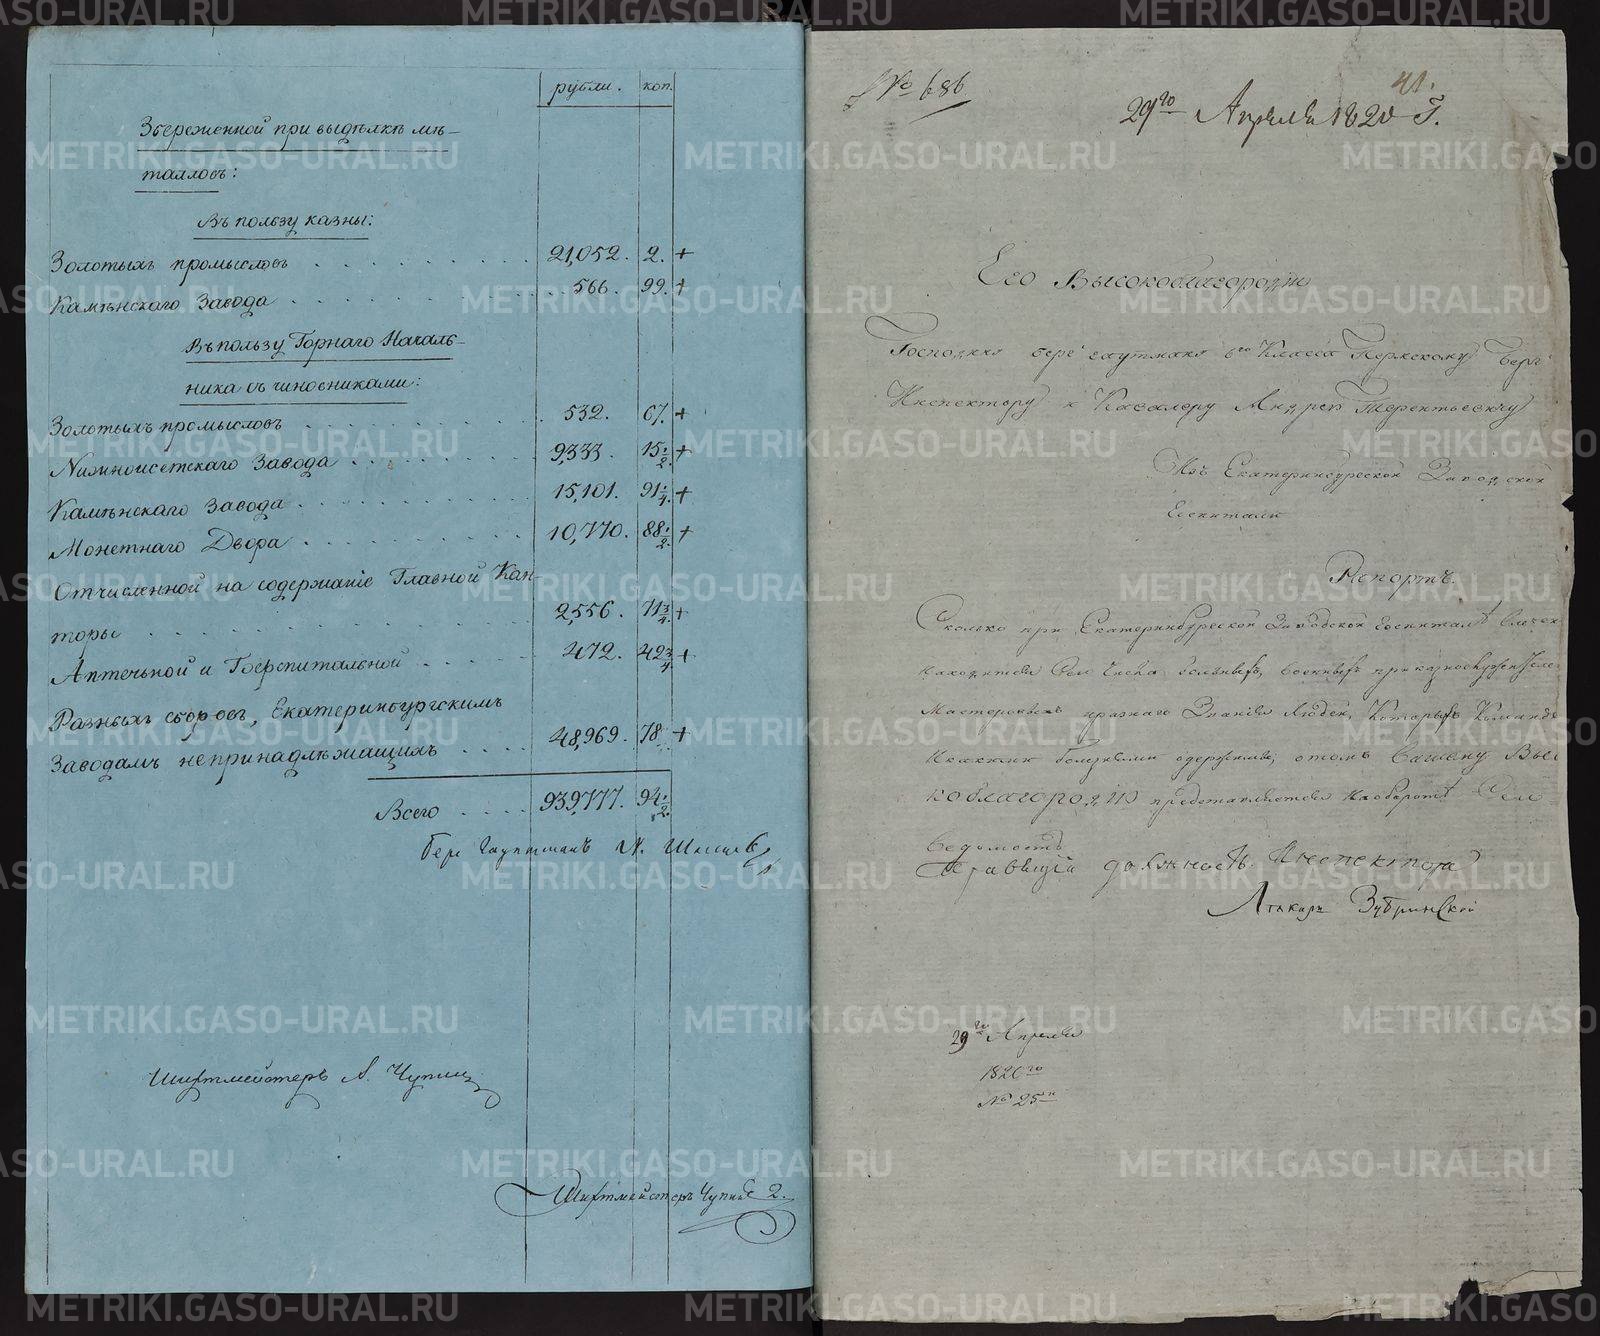 рубли. коп.
Збереженной при выдѣлкѣ мѣ-
таллосъ:
Въ пользу казны:
Золотыхъ промысловъ . . . . . . 21,052. 2. +
Камѣнскаго Завода . . . . . . 566. 99. +
Въ пользу Горнаго Началь-
ника съ чиновниками:
Золотыхъ промысловъ . . . . . . 532. 67. +
Нижноисетскаго Завода . . . . . . 9,333. 15 1/2. +
Камѣнскаго Завода . . . . . . 15,101. 91 1/4. +
Монетнаго Двора . . . . . . 10,770. 88 1/2. +
Отчисленной на содержаніе Главной Кан-
торы . . . . . . 2,556. 71 3/4 +
Аптечьной и Гофспитальной . . . . 472. 42 3/4 +
Разныхъ сборовъ, Екатеринбургскимъ
Заводамъ непринадлѣжащихъ . . . . 48,969. 78 +
Всего . . . . 939,777. 94 1/2.
Берг Гауптманъ
Шихтмейстеръ А. Чупинъ
Шихтмейстеръ Чупинъ 2.
№ 686
41.
29го Апреля 1820 Г.
Его Высокоблагородію
Господину берггауптману 6го Класса Пермскому Берг
Инспектору и Кавалеру Андрею Терентьевичу
Изъ Екатеринбургской Заводской
Госпитали
Репортъ.
Сколько при Екатеринбургской Заводской госпиталѣ
находится больныхъ, военныхъ
Мастеровыхъ и разнаго Званія Людей, Которыхъ Командъ
болезньми одержимы, о томъ Вашему Высо
коблагородію представляется на оборотѣ
Ведомость
Правящій должность Инспектора
Лѣкарь Зубринской
29го Апреля
1820го
№ 25й
METRIKI.GASO-URAL.RU